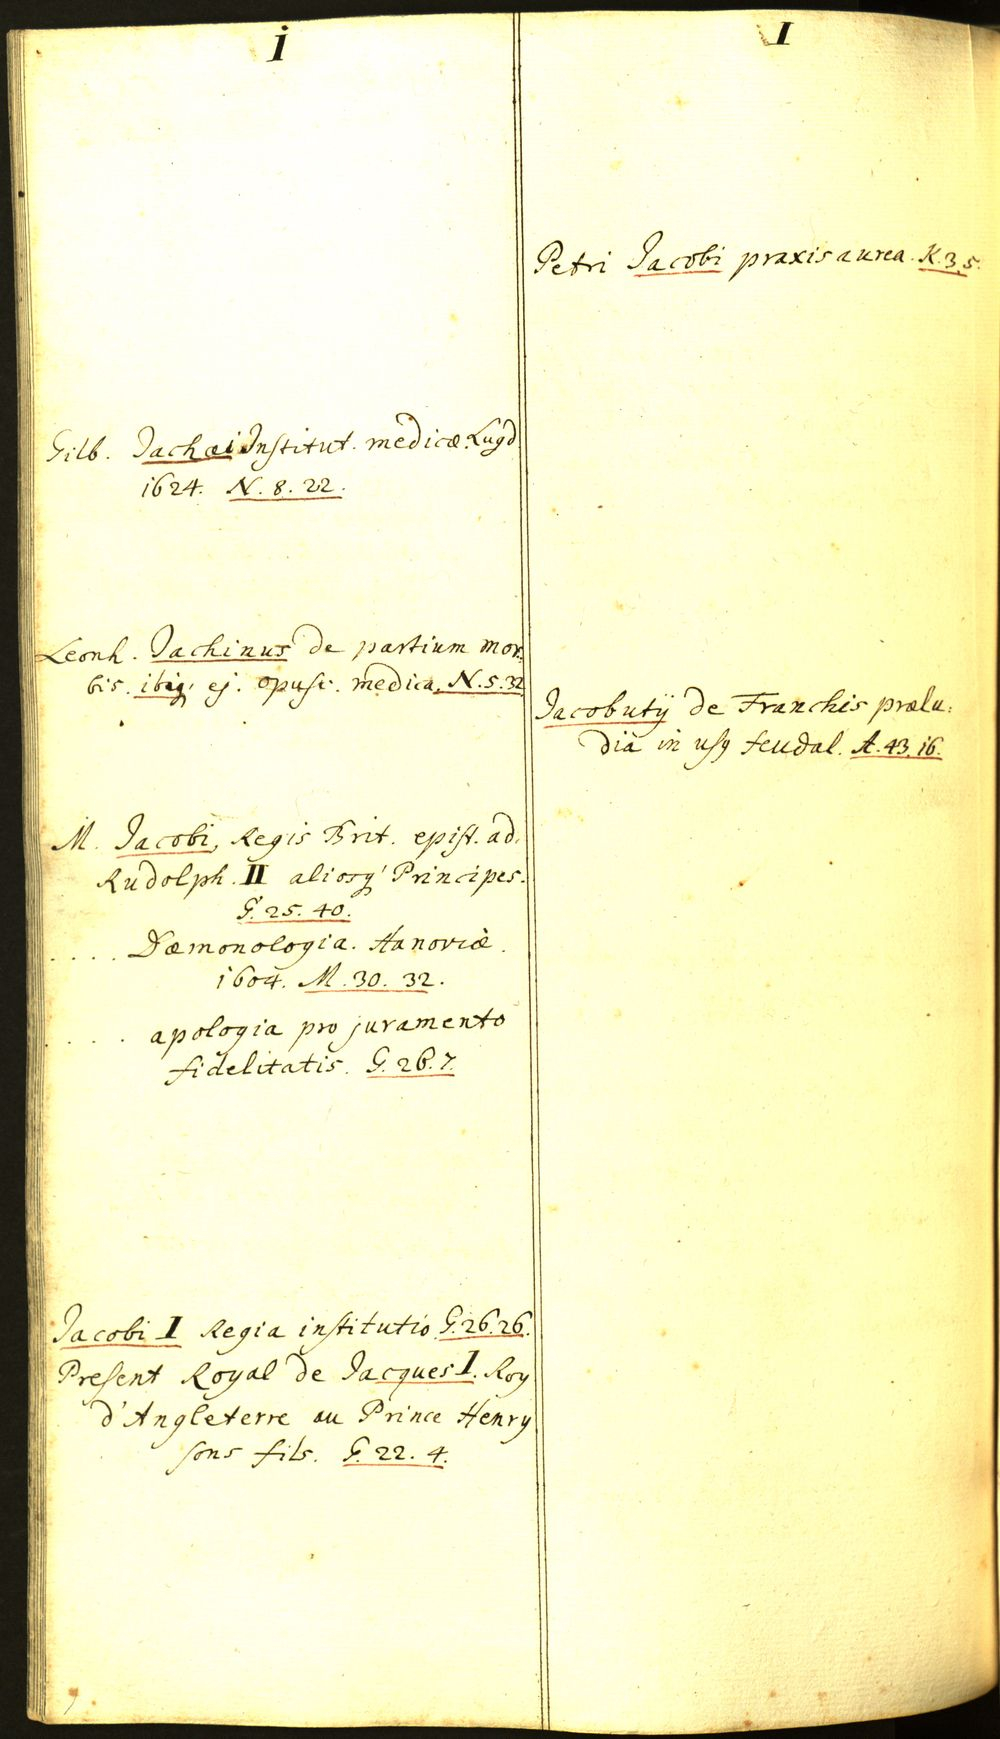 i
Gilb. Jachæi Institut. medicæ. Lugd
1624. N. 8. 22.
Leonh. Jachinus de partium mor:
bis. ej. opusc. medica. N. 5. 32
M. Jacobi, Regis Brit. epist. ad.
Rudolph. II aliosq' Principes.
G. 25. 40.
.... Dæmonologia. Hanoviæ.
1604. M. 30. 32.
.... apologia pro juramento
fidelitatis. G. 26. 7.
Jacobi I Regia institutio. G. 26. 26.
Present Royal de Jacques I. Roy
d'Angleterre au Prince Henry
sons fils. G. 22. 4.
I
Petri Jacobi praxis aurea. K. 3. 5.
Jacobutÿ de Franchis prælu:
dia in feudal. A. 43. 16.